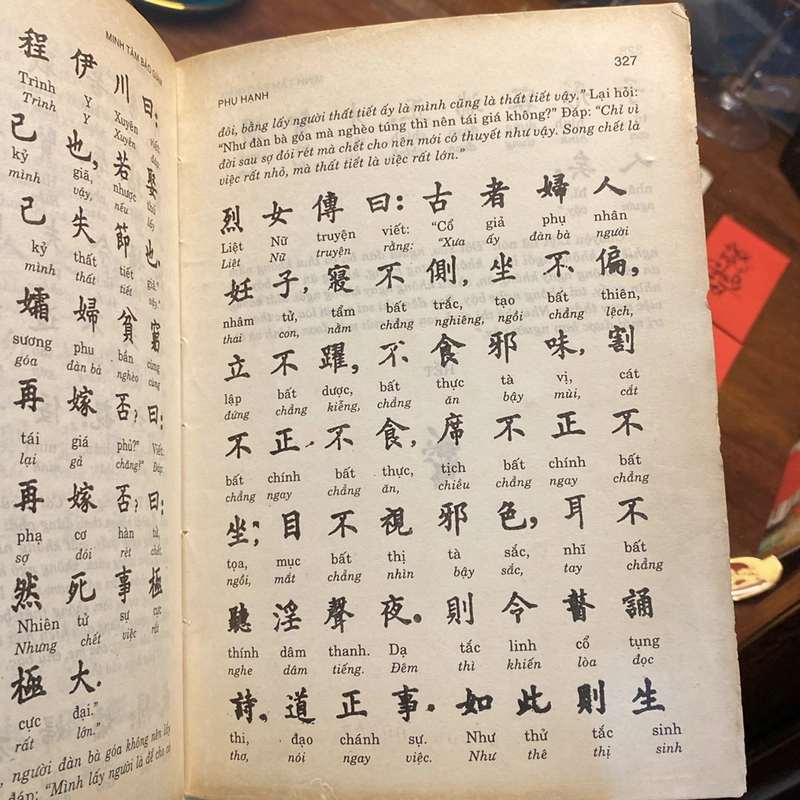 MINH TÂM BẢO GIÁM
程 伊 川 曰:
Trình Y Xuyên viết:
Trình Y Xuyên
己 也, 若 娶
kỷ giã, nhược thú
mình vậy, nếu lấy
己 失 節 也
kỷ thất tiết giả."
mình thất tiết
孀 婦 貧 窮
sương phụ bần cùng
góa đàn bà nghèo cùng
再 嫁 否? 曰:
tái giá phủ?" Viết:
lại gả chăng?" Đáp:
再 嫁 否? 曰:
phạ cơ hàn tử,
sợ đói rét chết,
然 死 事 極
Nhiên tử sự cực
Nhưng chết việc rất
極 大.
cực đại."
rất lớn."
, người đàn bà góa không nên lấy
đáp: "Mình lấy người là để cho
PHỤ HẠNH
327
đói, bằng lấy người thất tiết ấy là mình cũng là thất tiết vậy." Lại hỏi:
"Như đàn bà góa mà nghèo túng thì nên tái giá không?" Đáp: "Chỉ vì
đời sau sợ đói rét mà chết cho nên mới có thuyết như vậy. Song chết là
việc rất nhỏ, mà thất tiết là việc rất lớn."
烈 女 傳 曰: 古 者 婦 人
Liệt Nữ truyện viết: "Cổ giả phụ nhân
Liệt Nữ truyện rằng: "Xưa ấy đàn bà người
妊 子, 寢 不 側, 坐 不 偏,
nhâm tử, tẩm bất trắc, tạo bất thiên,
thai con, nằm chẳng nghiêng, ngồi chẳng lệch,
立 不 躍, 不 食 邪 味, 割
lập bất dược, bất thực tà vị, cát
đứng chẳng kiễng, chẳng ăn bậy mùi, cắt
不 正 不 食, 席 不 正 不
bất chính bất thực, tịch bất chính bất
chẳng ngay chẳng ăn, chiếu chẳng ngay chẳng
坐; 目 不 視 邪 色, 耳 不
tọa, mục bất thị tà sắc, nhĩ bất
ngồi, mắt chẳng nhìn bậy sắc, tay chẳng
聽 淫 聲 夜。 則 令 瞽 誦
thính dâm thanh. Dạ tắc linh cổ tụng
nghe dâm tiếng. Đêm thì khiến lòa đọc
詩, 道 正 事. 如 此 則 生
thi, đạo chánh sự. Như thử tắc sinh
thơ, nói ngay việc. Như thế thị sinh